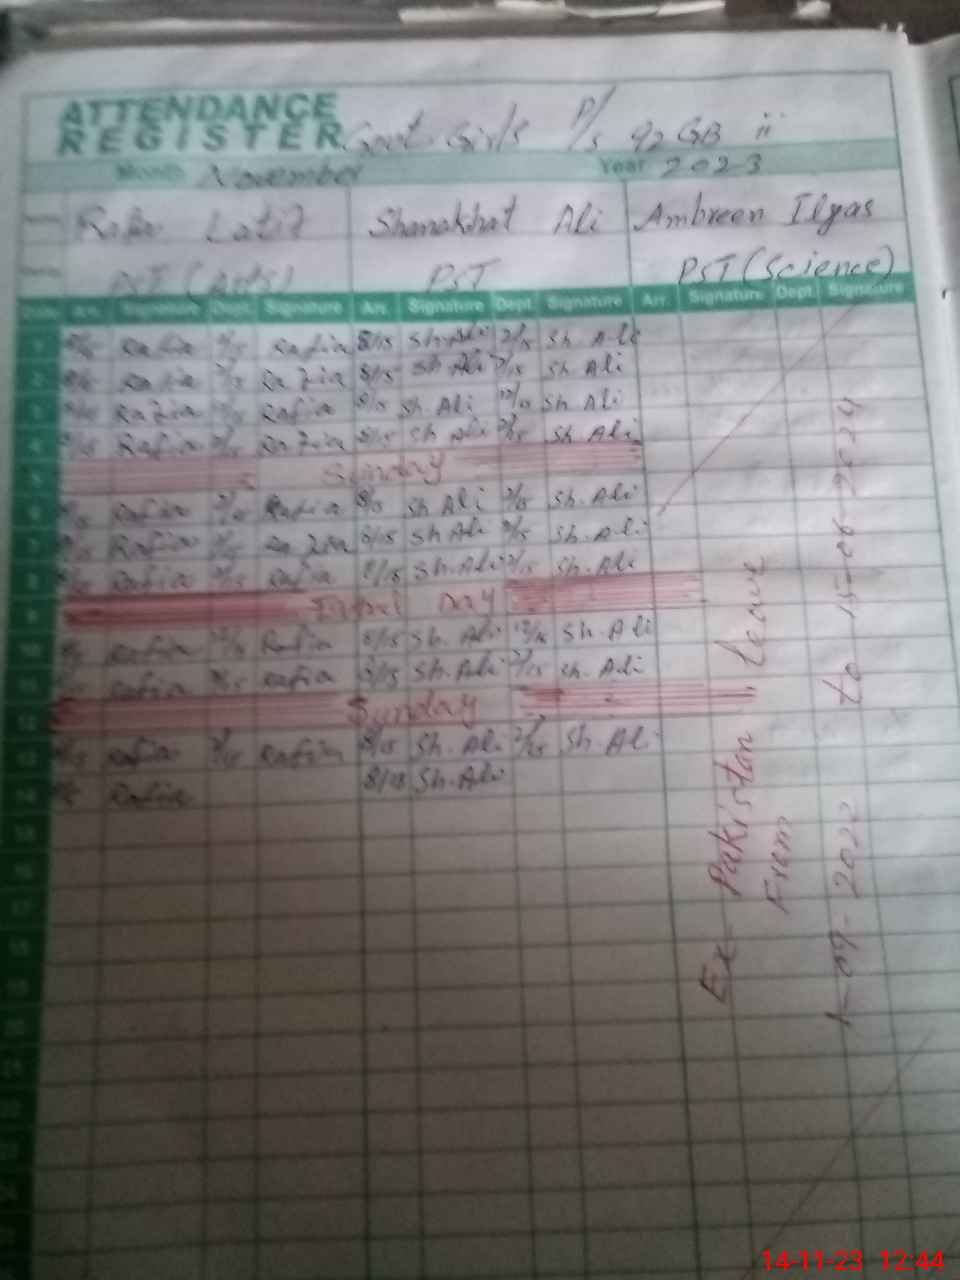 ATTENDANCE
REGISTER Govt. Girls P/S 92 GB ii
Month November Year 2023
Latif Shanakhat Ali Ambreen Ilyas
PST (Arts) PST PST (Science)
Date Arr. Signature Dept. Signature Arr. Signature Dept. Signature Arr. Signature Dept. Signature
1 Rafia Rafia 8/15 Sh. Ali 2/15 Sh. Ali
2 Rafia Rafia 8/15 Sh Ali Sh. Ali
3 Rafia Rafia 8/15 Sh. Ali 12/15 Sh. Ali
4 Rafia Rafia 8/15 Sh Ali Sh. Ali
5 Sunday
6 Rafia Rafia Sh Ali 2/15 Sh. Ali
7 Rafia Rafia 8/15 Sh Ali Sh. Ali
8 Rafia Rafia 8/15 Sh. Ali Sh. Ali
9 Iqbal Day
10 Rafia Rafia 8/15 Sh. Ali 12/15 Sh. Ali
11 Rafia Rafia 8/15 Sh. Ali 2/15 Sh. Ali
12 Sunday
13 Rafia Rafia 8/15 Sh. Ali 2/15 Sh. Ali
14 Rafia 8/15 Sh. Ali
15
16
17
18
19
20
21
22
23
24
Ex- Pakistan leave
From
1-09-2022 to 15-06-2024
14-11-23 12:44